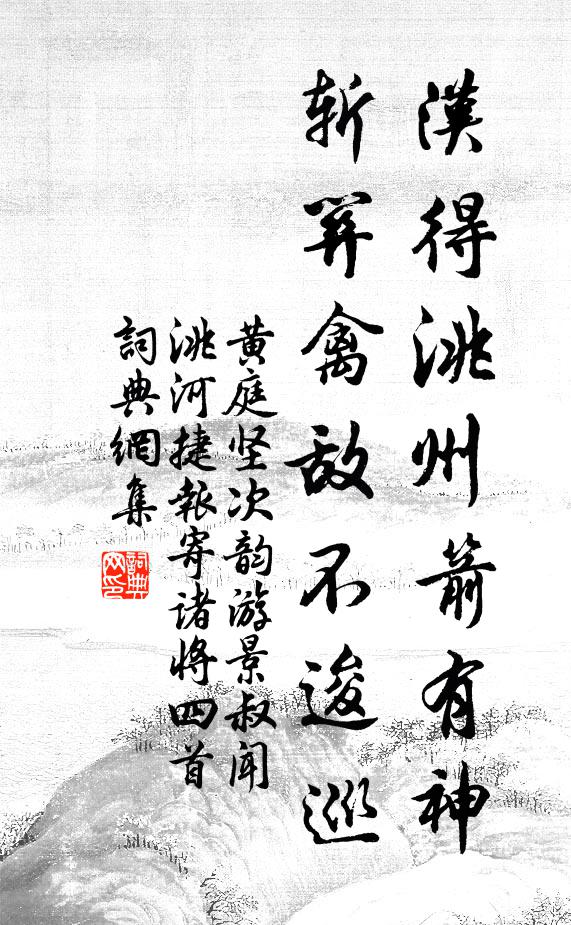 漢得洮州箭有神
斬関禽敌不逡巡
黄庭坚次韵游景叔闻
洮河捷報寄诸将四首
詞典網集
詞典網印